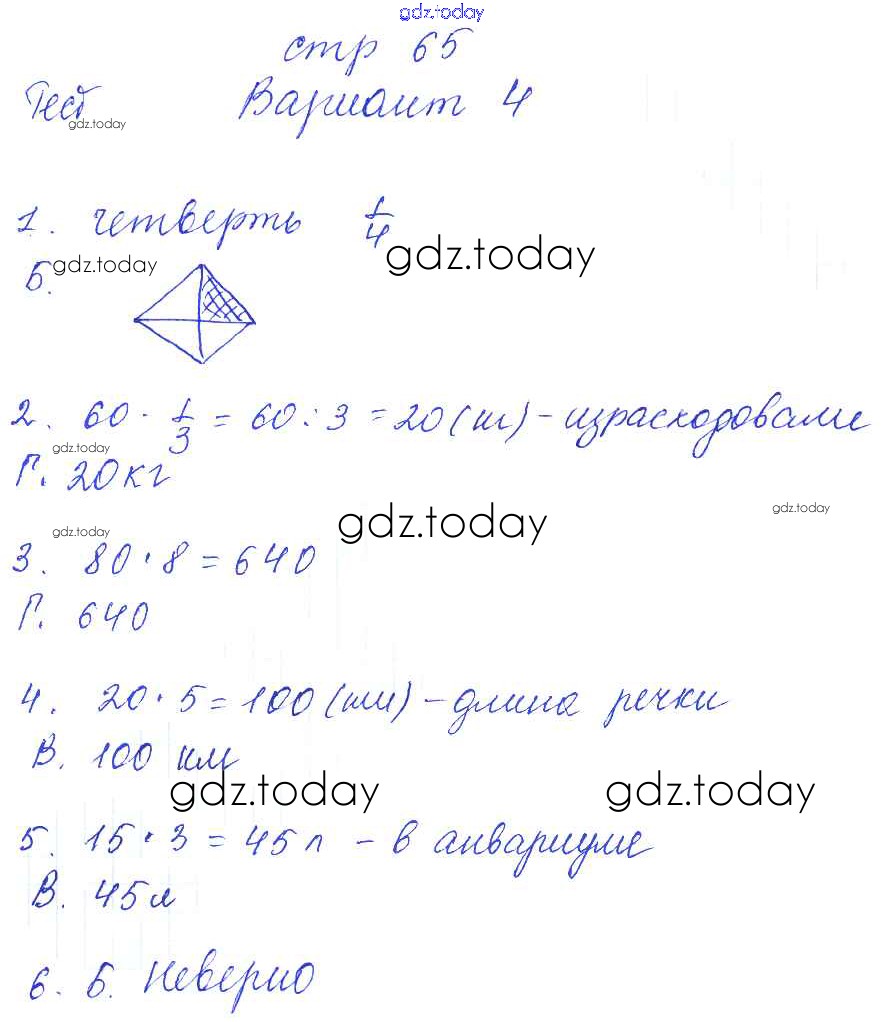 gdz.today
стр 65
Тест Вариант 4
gdz.today
1. четверть 1/4
gdz.today
Б. gdz.today
2. 60 · 1/3 = 60 : 3 = 20 (кг) - израсходовали
gdz.today
Г. 20 кг
gdz.today
gdz.today
gdz.today
3. 80 · 8 = 640
Г. 640
4. 20 · 5 = 100 (км) - длина речки
В. 100 км
gdz.today gdz.today
5. 15 · 3 = 45 л - в аквариуме
В. 45 л
6. Б. Неверно